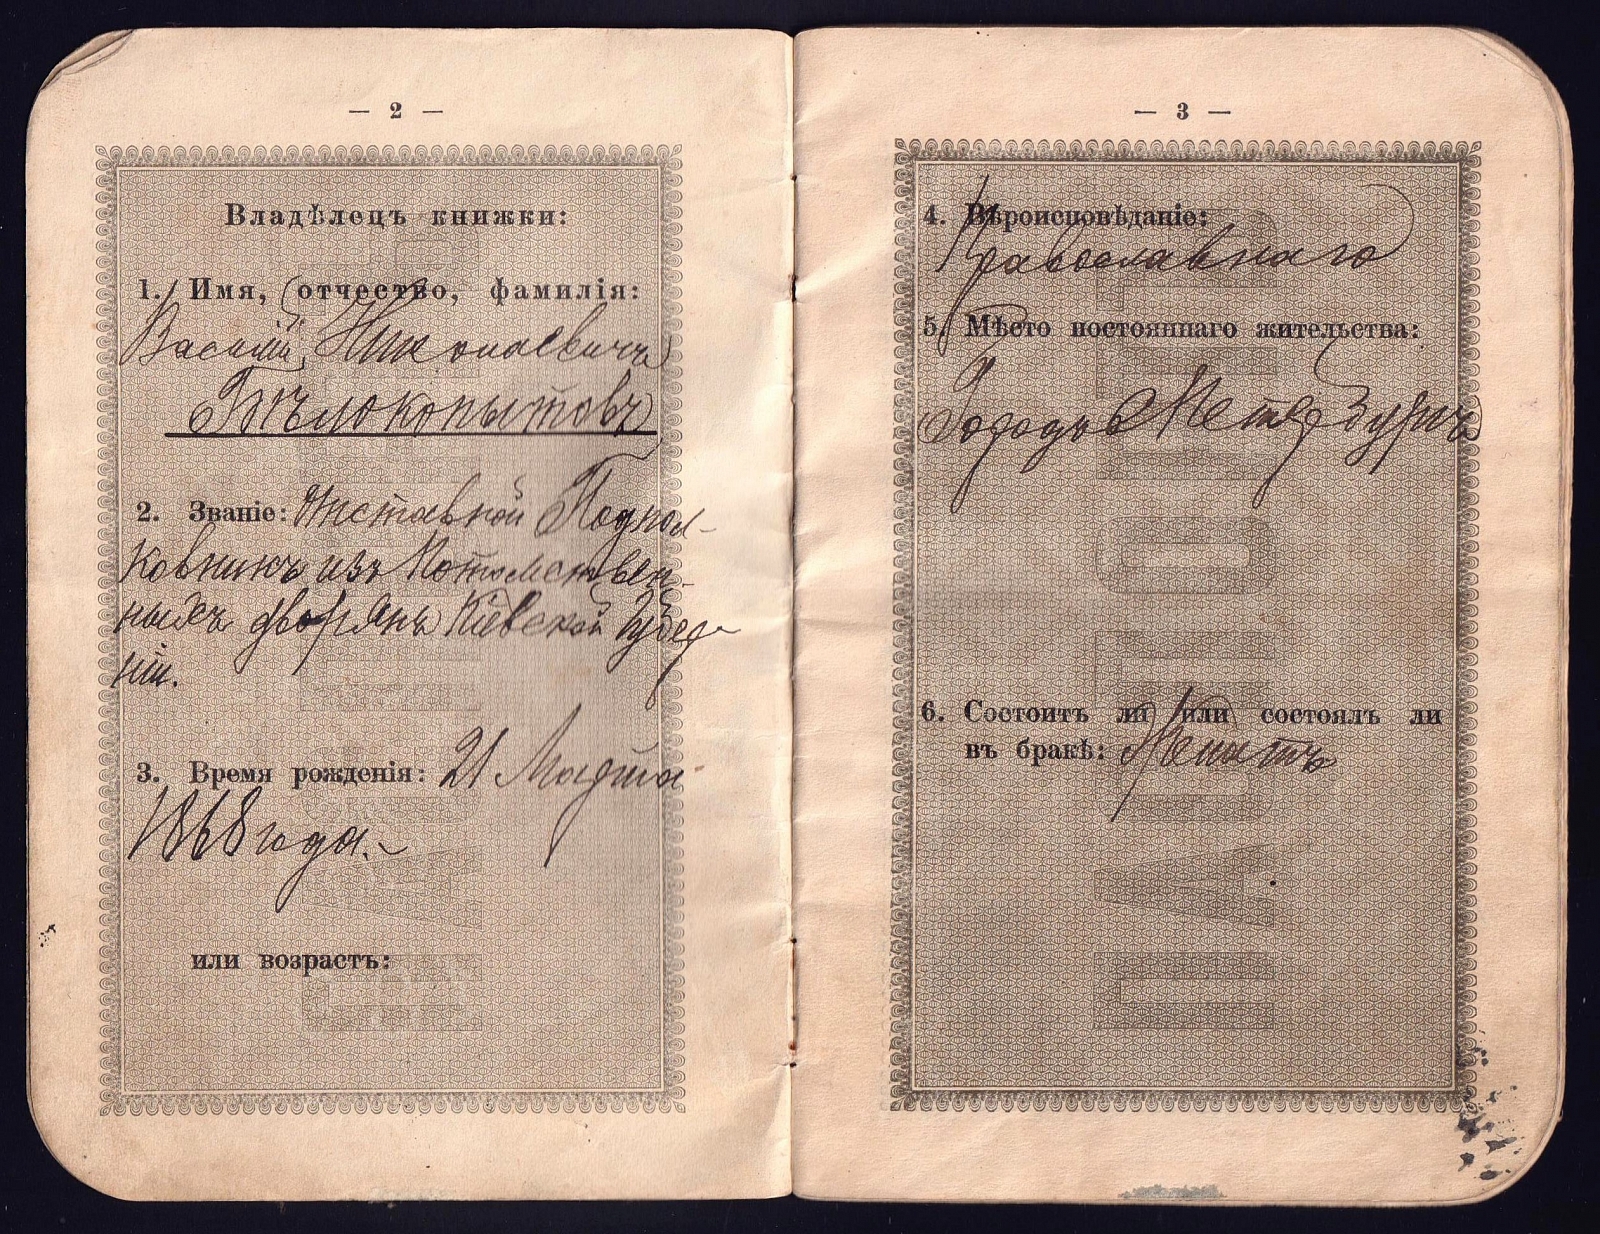 — 2 —
Владѣлецъ книжки:
1. Имя, отчество, фамилія:
Василій Николаевичъ
Бѣлокопытовъ
2. Званіе: Отставной Подпол-
ковникъ изъ Потомствен-
ныхъ дворянъ Кіевской Губер-
ніи.
3. Время рожденія: 21 Марта
1868 года.
или возрастъ:
— 3 —
4. Вѣроисповѣданіе:
Православнаго
5. Мѣсто постояннаго жительства:
Городъ Петербургъ
6. Состоитъ ли или состоялъ ли
въ бракѣ: Женатъ
ПАСПОРТНАЯ